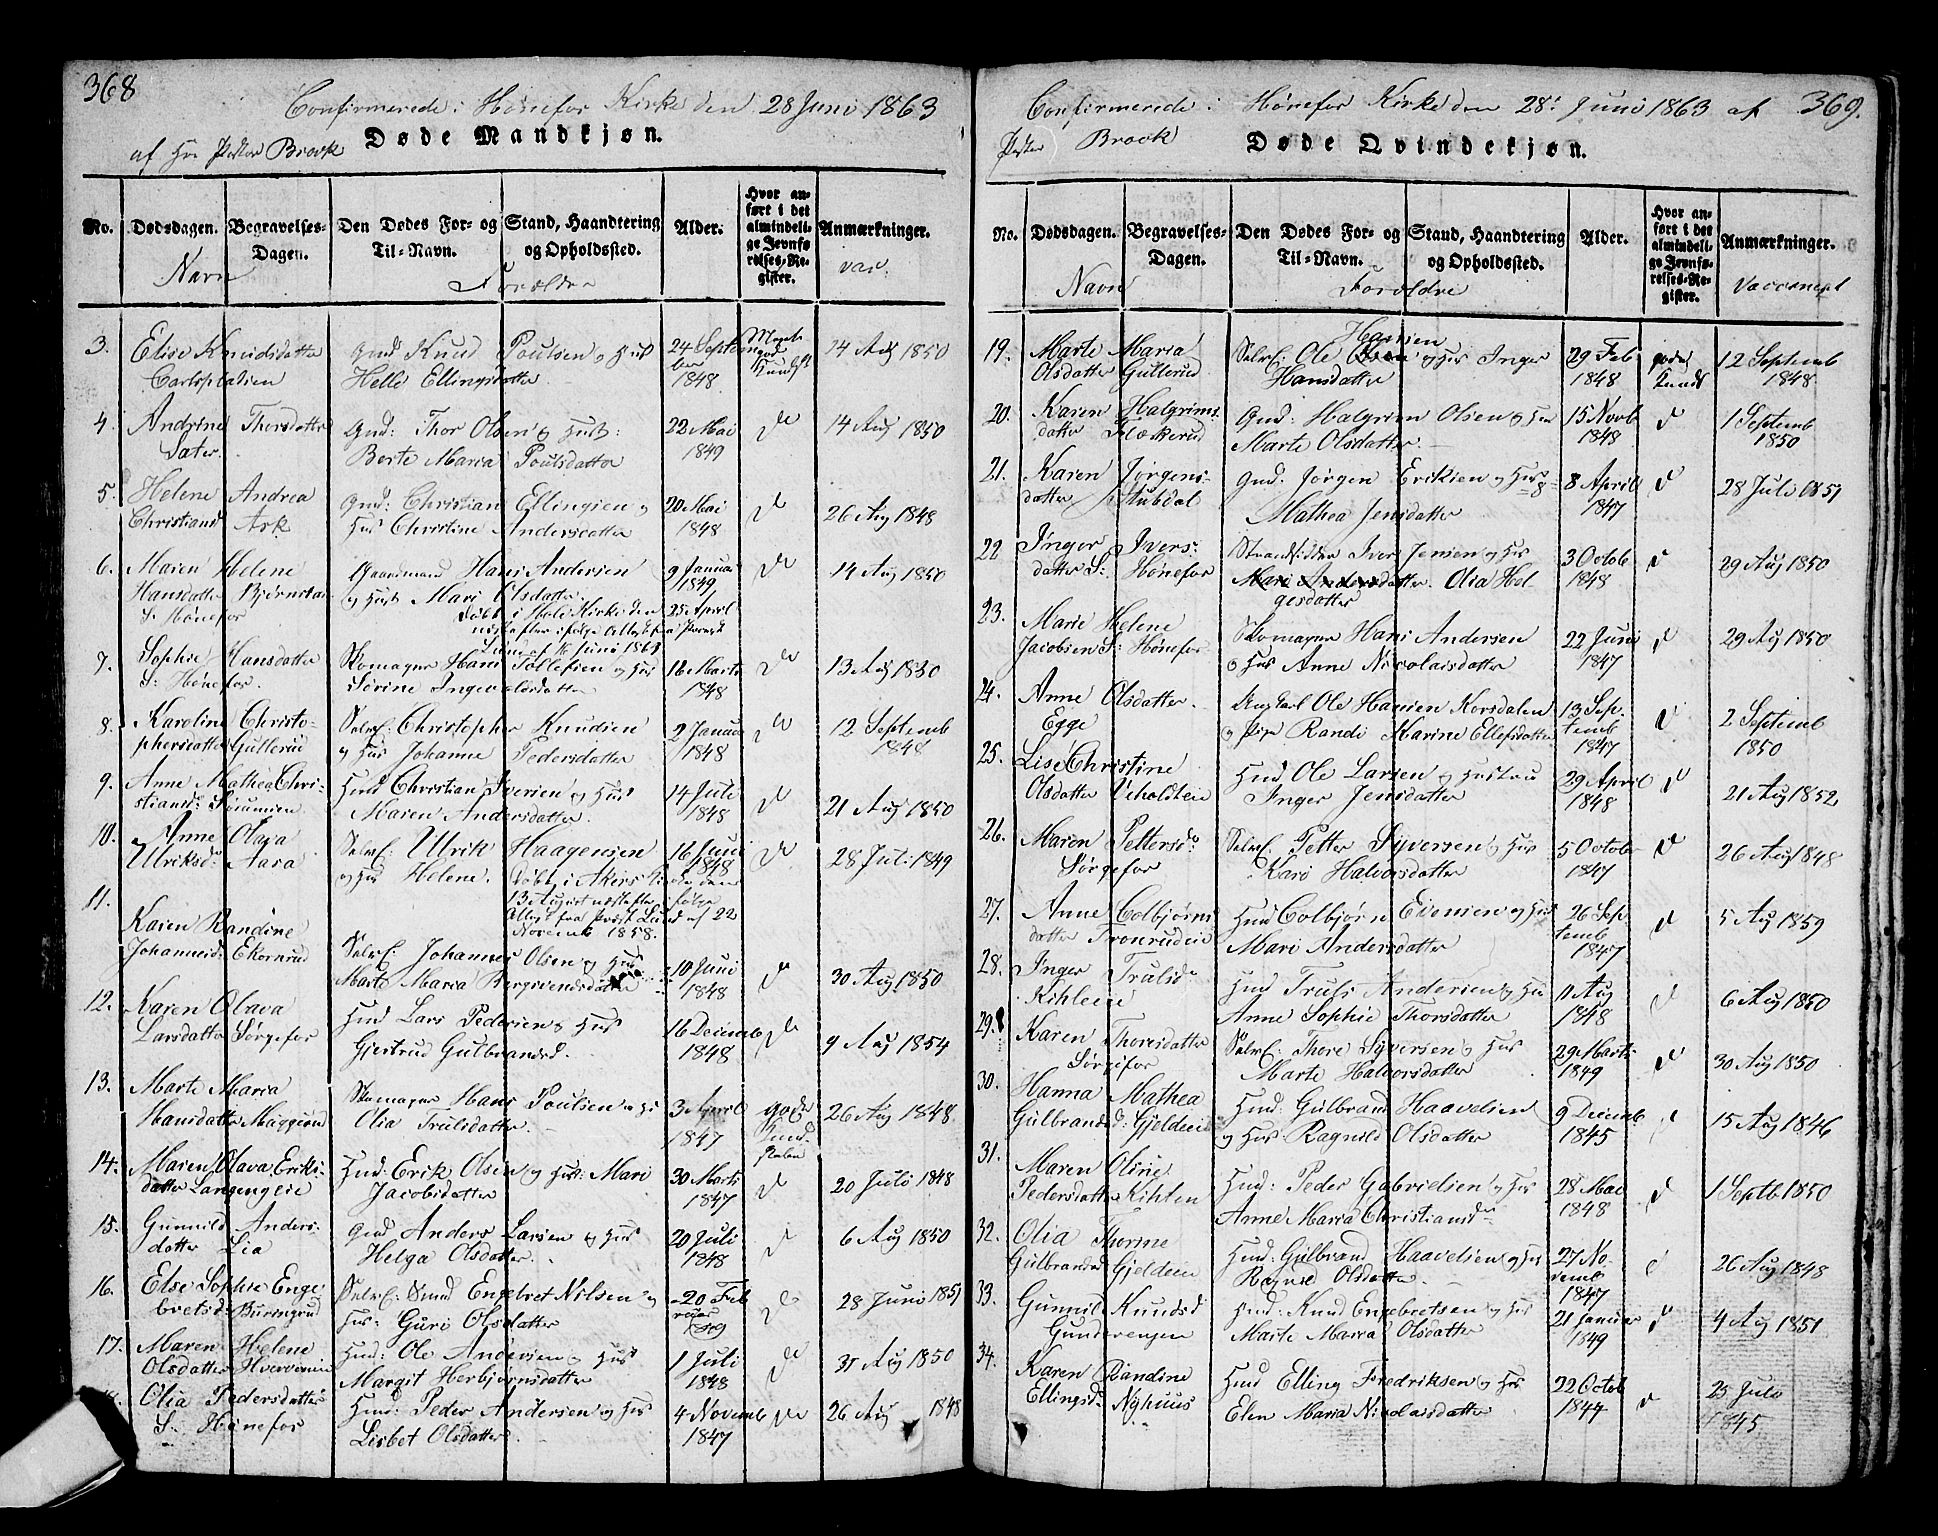 368
Confirmerede i Hønefos Kirke den 28 Juni 1863
af Hr Pastor Brock
Døde Mandkjøn.
No.
Dødsdagen.
Begravelses-
Dagen.
Den Dødes For- og
Til-Navn.
Stand, Haandtering
og Opholdssted.
Alder.
Hvor an-
ført i det
almindeli-
ge Jevnfø-
relses-Re-
gister.
Anmærkninger.
Navn
Forældre
vac.
3. Elise Knudsdatter
Gmd Knud Poulsen og Hust
24 Septem
ber
1848
14 Aug 1850
Helle Ellingsdatter
4. Andrine Thorsdatter
Sæter.
Gmd: Thor Olsen og Hust:
Berte Maria Poulsdatter
22 Mai
1849
do
14 Aug 1850
5. Helene Andrea
Christiansd Ask
Gmd: Christian Ellingsen og
Hus Christine Andersdatter
20 Mai
1848
do
26 Aug 1848
6. Maren Helene
Hansdatter
S. Hønefos
Gaardmand Hans Andersen
og Hust Mari Olsdatter.
Døbt i Hole Kirke den 25 April
9 Januar
1849
do
14 Aug 1850
7. Sophie Hansdatter
S. Hønefos.
Skomager Hans Tollefsen og Hus
Sørine Ingevoldsdatter
16 Marts
1848
do
13 Aug 1850
8. Karoline Christo-
phersdatter Gullerud
Selvei: Christopher Knudsen
og Hus Johanne Pedersdatter
2 Januar
1848
do
12 Septemb
1848
9. Anne Mathea Chri-
stiansd:
Hmd Christian Iversen og Hus
Maren Andersdatter.
14 Juli
1848
do
21 Aug 1850
10. Anne Olava
Ulriksd: Aasa
Selvei: Ulrik Haagensen
og Hus Helene. Døbt i Akers Kirke den
13 August næstefter ifølge
Attest fra Præst Lund af 22
Novemb 1858.
16 Juni
1848
do
28 Juli 1849
11. Karen Randine
Johannesd: Ekornrud
Selvei: Johannes Olsen og Hus
Marte Maria Bergsvendsdatter
10 Juni
1848
do
30 Aug 1850
12. Karen Olava
Larsdatter Sørgefos
Hmd Lars Pedersen og Hus
Gjertrud Gulbrandsd.
16 Decemb
1848
do
9 Aug 1854
13. Marte Maria
Hansdatter
Skomager Hans Poulsen og Hus
Olia Trulsdatter.
3 April
1847
gode
Kund-
skaber
26 Aug 1848
14. Maren Olava Eriks-
datter Langengeie
Hmd: Erik Olsen og Hust: Mari
Jacobsdatter
30 Marts
1847
do
20 Juli 1848
15. Gunnild Anders-
datter Lia
Gmd Anders Larsen og Hus
Helga Olsdatter.
20 Juli
1848
do
6 Aug 1850
16. Else Sophie Enge-
bretsd: Buringrud
Selvei: Smed Engebret Nilsen og
Hus: Guri Olsdatter
20 Feb
ruar
do
28 Juni 1851
17. Maren Helene
Olsdatter
Hmd: Ole Andersen og Hus
Margit Herbjørnsdatter
1 Juli
1848
do
31 Aug 1850
Olia Pedersdatter
S. Hønefos
Hmd: Peder Andersen og Hus
Lisbet Olsdatter
4 Novemb
1847
do
26 Aug 1848
Confirmerede i Hønefos Kirke den 28. Juni 1863 af
369.
Pastor Brock
Døde Qvindekjøn.
No.
Dødsdagen.
Begravelses-
Dagen.
Den Dødes For- og
Til-Navn.
Stand, Haandtering
og Opholdssted.
Alder.
Hvor an-
ført i det
almindeli-
ge Jevnfø-
relses-Re-
gister.
Anmærkninger.
Navn
Forældre
Vaccineret
19. Marte Maria
Olsdatter Gullerud
Selvei: Ole Hansen og Hus Inger
Hansdatter
29 Feb
1848
gode
Kunds
12 Septemb
1848
20. Karen Halgrims-
datter Flaskerud
Gmd: Halgrim Olsen og Hus
Marte Olsdatter.
15 Novb
1848
d
1 Septemb
1850
21. Karen Jørgens-
datter Stubdal
Gmd: Jørgen Eriksen og Hus
Mathea Jensdatter
8 April
1847
d
28 Juli 1851
22 Inger Ivers-
datter S: Hønefos
Strandsidder Iver Jensen og Hus
Mari Andersdatter. Olia Hel-
gesdatter
3 Octob
1848
d
29 Aug 1850
23. Marie Helene
Jacobsen S: Hønefos
Skomager Hans Andersen
og Hus Anne Nicolaisdatter
22 Juni
1847
d
29 Aug 1850
24. Anne Olsdatter.
Egge
Ungkarl Ole Hansen Korsdalen
og Pige Randi Marine Ellefsdatter
13 Sep-
temb
1847
d
2 Septemb
1850
25. Lise Christine
Olsdatter
Hmd Ole Larsen og Hustru
Inger Jensdatter
29 April
1848
d
21 Aug 1852
26. Maren Pettersd:
Sørgefos
Selvei: Petter Syversen og Hus
Kari Halvorsdatter
5 October
1847
d
26 Aug 1848
27. Anne Colbjørns
datter Tronrudeie
Hmd Colbjørn Evensen og Hus
Mari Andersdatter
26 Sep-
temb
1847
d
5 Aug 1859
28. Inger Trulsd
Kihleeie
Hmd Truls Andersen og Hus
Anne Sophie Thorsdatter
11 Aug
1848
d
6 Aug 1850
29. Karen Thoresdatter
Sørgefos
Selvei: Thore Syversen og Hus
Marte Halvorsdatter
29 Marts
1849
d
30 Aug 1850
30. Hanna Mathea
Gulbrandsd: Gjeldeeie
Hmd: Gulbrand Haavelsen
og Hus Ragnild Olsdatter
9 Decemb
1845
d
15 Aug 1846
31. Maren Oline
Pedersdatter Kihlen
Hmd: Peder Gabrielsen og Hus
Anne Maria Christiansd
28 Mai
1848
d
1 Septb 1850
32. Olia Thorine
Gulbrandsd Gjeldeeie
Hmd: Gulbrand Haavelsen og Hus
Ragnild Olsdatter
27 No-
vemb
1847
d
26 Aug 1848
33. Gunnil Knudsd
Gunderengen
Hmd: Knud Engebretsen og Hus
Marte Maria Olsdatter
21 Januar
1849
d
4 Aug 1851
34. Karen Randine
Ellingsd: Nyhuus
Hmd Elling Fredriksen og Hus
Elen Maria Nicolaisdatter
22 Octob
1844
d
25 Julo
1845